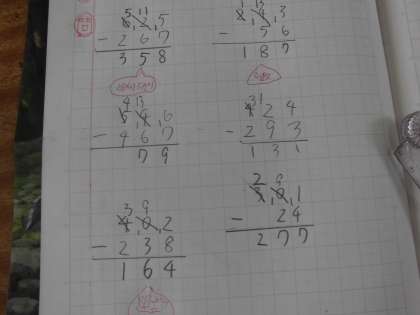 5 11
6 2 5
- 2 6 7
3 5 8
1 13
2 4 3
- 5 6
1 8 7
4 13
5 4 6
- 4 6 7
7 9
3 1
4 2 4
- 2 9 3
1 3 1
3 9
4 0 2
- 2 3 8
1 6 4
2 9
3 0 1
- 2 4
2 7 7